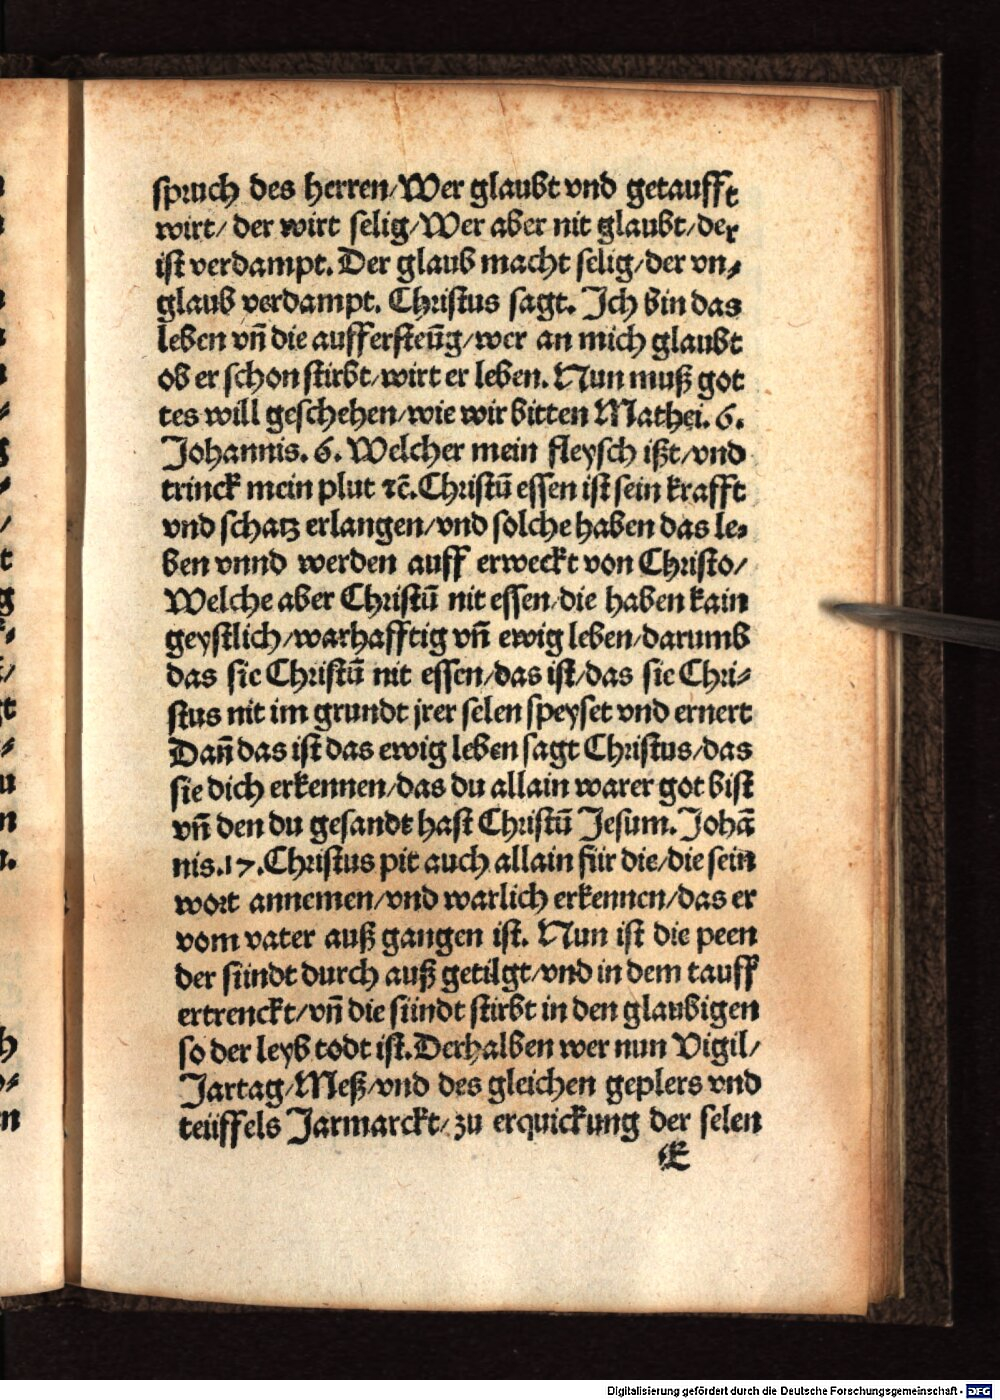 spruch des herren/Wer glaubt vnd getaufft
wirt/ der wirt selig/Wer aber nit glaubt/der
ist verdampt. Der glaub macht selig/der vn⸗
glaub verdampt. Christus sagt. Ich bin das
leben vñ die auffersteũg/wer an mich glaubt
ob er schon stirbt/wirt er leben. Nun muß got
tes will geschehen/wie wir bitten Mathei. 6.
Johannis. 6. Welcher mein fleysch ißt/vnd
trinck mein plut ⁊c̃. Christũ essen ist sein krafft
vnd schatz erlangen/vnd solche haben das le⸗
ben vnnd werden auff erweckt von Christo/
Welche aber Christũ nit essen/die haben kain
geystlich/warhafftig vñ ewig leben/darumb
das sie Christũ nit essen/das ist/das sie Chri⸗
stus nit im grundt jrer selen speyset vnd ernert
Dañ das ist das ewig leben sagt Christus/das
sie dich erkennen/das du allain warer got bist
vñ den du gesandt hast Christũ Jesum. Johã
nis.17. Christus pit auch allain für die/die sein
wort annemen/vnd warlich erkennen/das er
vom vater auß gangen ist. Nun ist die peen
der sündt durch auß getilgt/vnd in dem tauff
ertrenckt/vñ die sündt stirbt in den glaubigen
so der leyb todt ist. Derhalben wer nun Vigil/
Jartag/Meß/vnd des gleichen geplers vnd
teüffels Jarmarckt/zu erquickung der selen
E
Digitalisierung gefördert durch die Deutsche Forschungsgemeinschaft - DFG